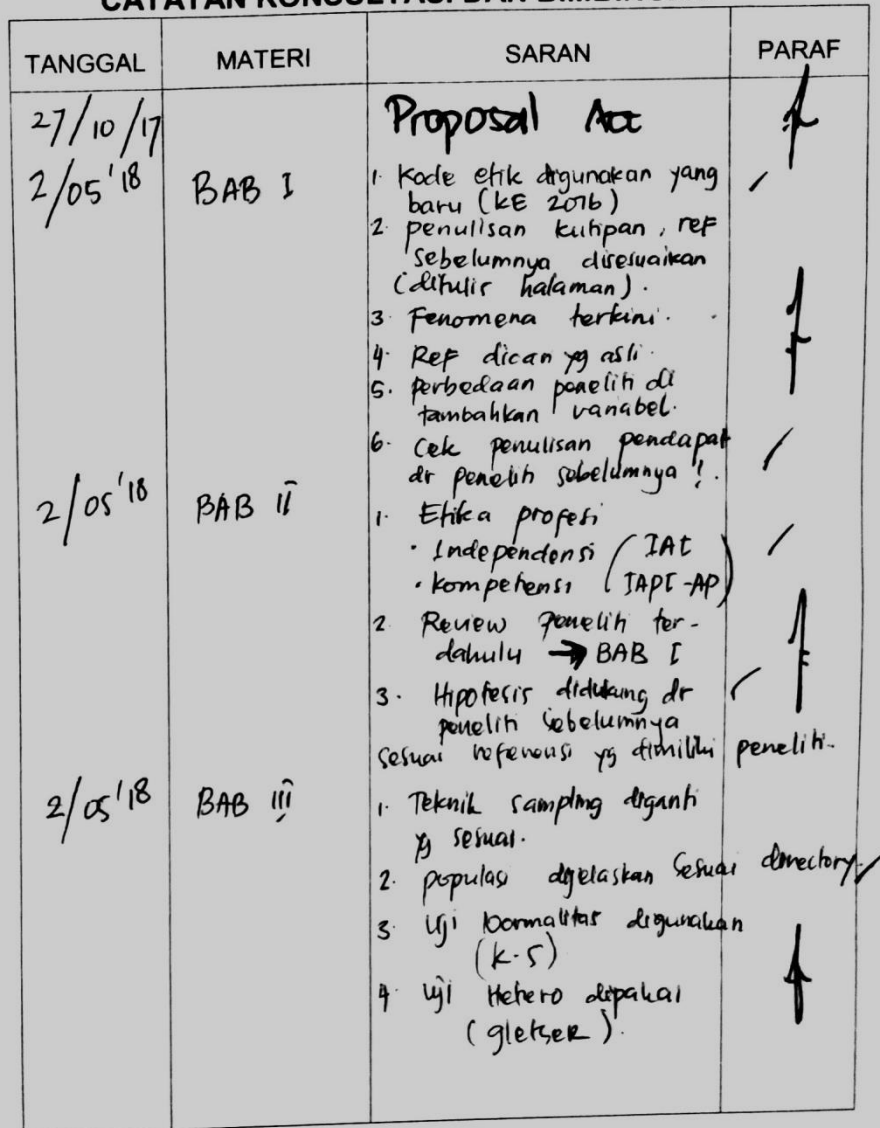 TANGGAL MATERI SARAN PARAF
27/10/17 Proposal Acc
2/05'18 BAB I 1. Kode etik digunakan yang
baru (KE 2016)
2. penulisan kutipan, ref
sebelumnya disesuaikan
(ditulis halaman).
3. Fenomena terkini.
4. Ref dicari yg asli.
5. Perbedaan peneliti di
tambahkan variabel.
6. Cek penulisan pendapat
dr peneliti sebelumnya!.
2/05'18 BAB II 1. Etika profesi
• Independensi (IAI
• Kompetensi IAPI-AP)
2. Review peneliti ter-
dahulu → BAB I
3. Hipotesis didukung dr
peneliti sebelumnya
sesuai referensi yg dimiliki peneliti.
2/05'18 BAB III 1. Teknik sampling diganti
yg sesuai.
2. populasi dijelaskan sesuai directory
3. Uji normalitas digunakan
(K-S)
4. Uji Hetero dipakai
(gletser).